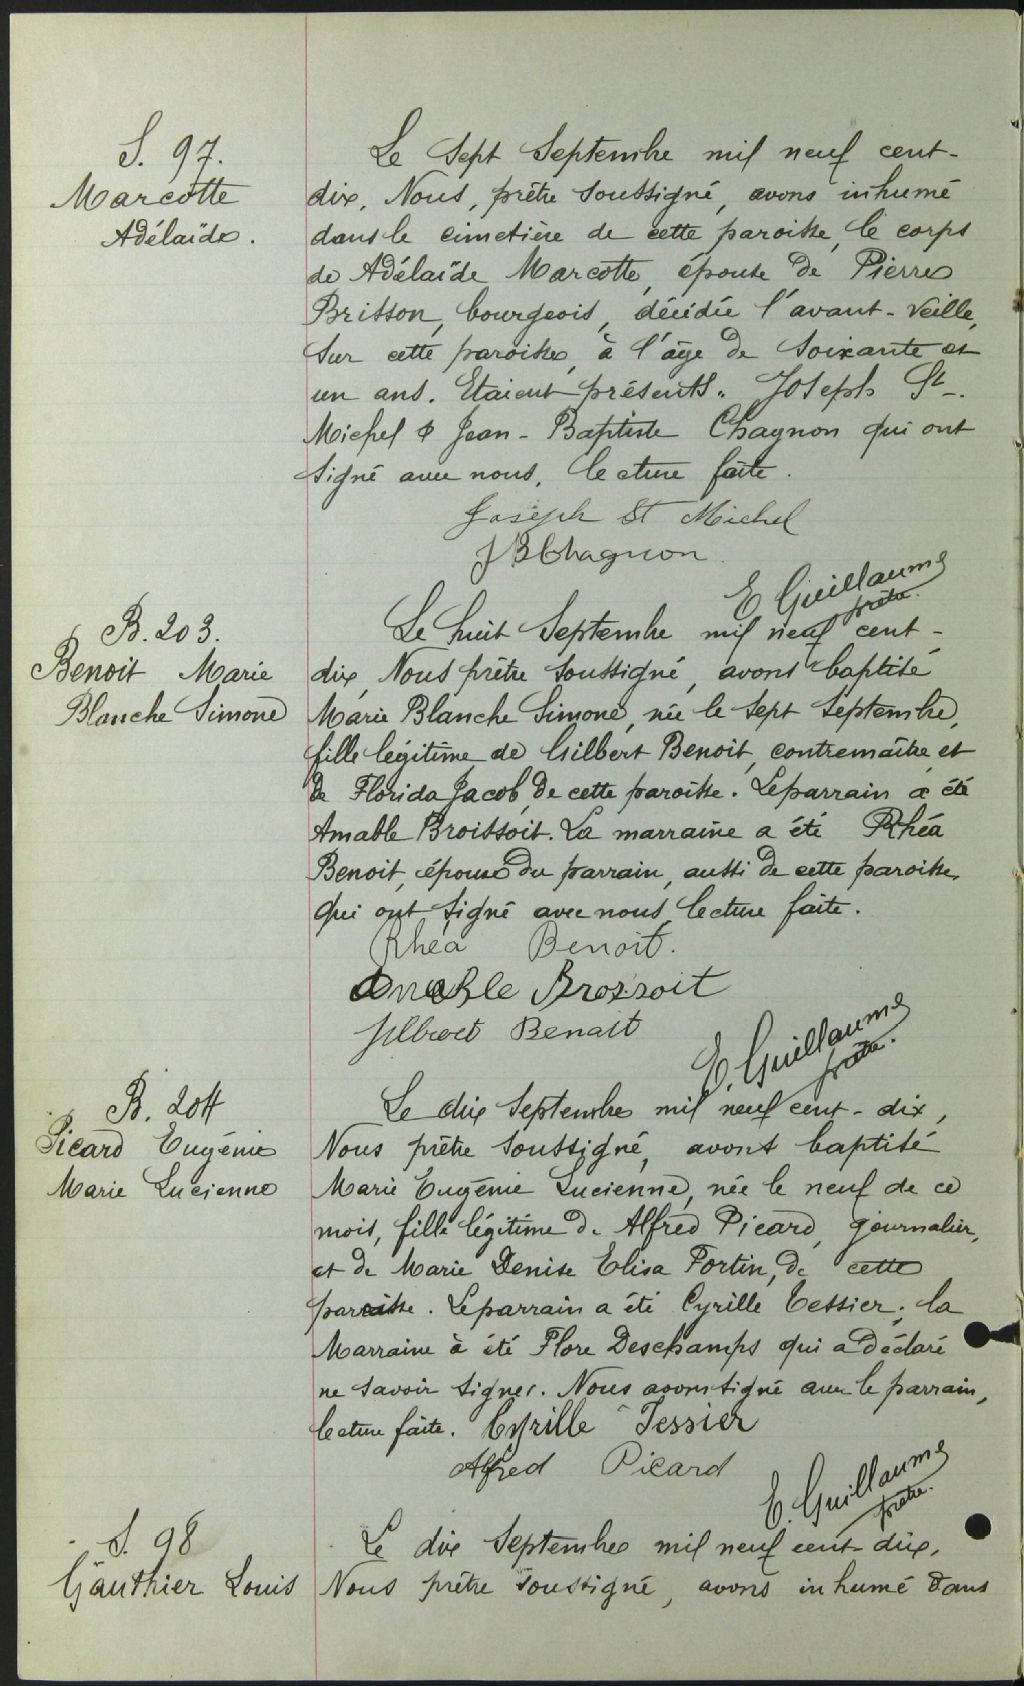 S. 97.
Marcotte
Adélaïde.
Le Sept Septembre mil neuf cent-
dix, Nous, prêtre soussigné, avons inhumé
dans le cimetière de cette paroisse, le corps
de Adélaïde Marcotte, épouse de Pierre
Brisson, bourgeois, décédée l'avant-veille,
sur cette paroisse, à l'âge de soixante et
un ans. Etaient présents. Joseph St-
Michel & Jean-Baptiste Chagnon qui ont
signé avec nous, lecture faite.
Joseph St Michel
JBChagnon
E Guillaume
prêtre.
B. 203.
Benoit Marie
Blanche Simone
Le huit Septembre mil neuf cent-
dix, Nous prêtre soussigné, avons baptisé
Marie Blanche Simone, née le sept septembre,
fille légitime de Gilbert Benoit, contremaître et
de Florida Jacob, de cette paroisse. Le parrain a été
Amable Broissoit. La marraine a été Rhéa
Benoit, épouse du parrain, aussi de cette paroisse,
qui ont signé avec nous, lecture faite.
Rhéa Benoit.
Amable Brossoit
Gilbert Benoit
E. Guillaume
prêtre.
B. 204
Picard Eugénie
Marie Lucienne
Le dix Septembre mil neuf cent-dix,
Nous prêtre soussigné, avons baptisé
Marie Eugénie Lucienne, née le neuf de ce
mois, fille légitime de Alfred Picard, journalier,
et de Marie Denise Elisa Fortin, de cette
paroisse. Le parrain a été Cyrille Tessier; la
Marraine à été Flore Deschamps qui a déclaré
ne savoir signer. Nous avons signé avec le parrain,
lecture faite. Cyrille Tessier
Alfred Picard
E. Guillaume
prêtre.
S. 98
Gauthier Louis
Le dix Septembre mil neuf cent dix,
Nous prêtre soussigné, avons inhumé dans